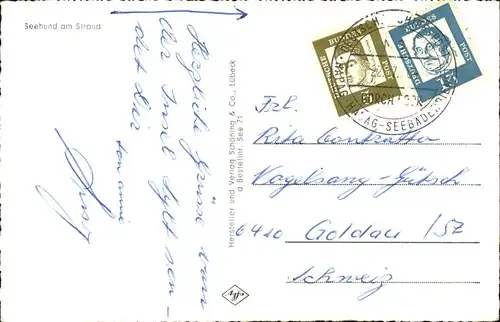 Seehund am Strand
Herzliche Grüsse von
der Insel Sylt sen-
det dir
Hersteller und Verlag Schöning & Co., Lübeck
Bestellnr. See 71
DEUTSCHE
BUNDESPOST
DEUTSCHE
BUNDESPOST
HAPAG-SEEBÄDER
Frl.
Rita Contratto
Vogelsang-Gütsch
6410 Goldau /SZ
Schweiz